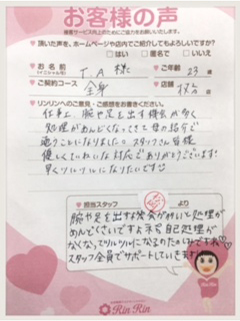 お客様の声
顧客サービス向上のためにご協力をお願いいたします。
♥ 頂いた声を、ホームページや店内でご紹介してもよろしいですか？
□はい □匿名で □いいえ
♥ お名前
(イニシャル可)
T.A 様
♥ ご年齢
23 歳
♥ ご契約コース
全身
♥ 店舗
♥ リンリンへのご意見・ご感想をお書きください。
仕事上、腕や足を出す機会が多く
処理がめんどくさくなってきて母の紹介で
通うことになりました。スタッフさん皆様
優しくていねいな対応でありがとうございます!
早くツルツルになりたいです♡
♥ 担当スタッフ
より
腕や足を出す機会が多いと処理が
めんどくさいですよね 自己処理が
なくなってツルツルになるのたのしみですね
スタッフ全員でサポートしていきます
RinRin